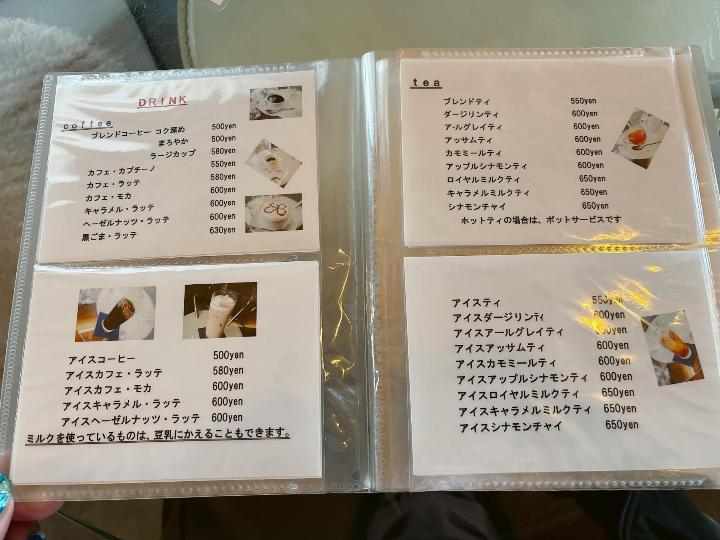 DRINK
coffee
ブレンドコーヒー コク深め 500yen
まろやか 500yen
ラージカップ 580yen
カフェ・カプチーノ 550yen
カフェ・ラッテ 580yen
カフェ・モカ 600yen
キャラメル・ラッテ 600yen
ヘーゼルナッツ・ラッテ 600yen
黒ごま・ラッテ 630yen
アイスコーヒー 500yen
アイスカフェ・ラッテ 580yen
アイスカフェ・モカ 600yen
アイスキャラメル・ラッテ 600yen
アイスヘーゼルナッツ・ラッテ 600yen
ミルクを使っているものは、豆乳にかえることもできます。
tea
ブレンドティ 550yen
ダージリンティ 600yen
アールグレイティ 600yen
アッサムティ 600yen
カモミールティ 600yen
アップルシナモンティ 600yen
ロイヤルミルクティ 650yen
キャラメルミルクティ 650yen
シナモンチャイ 650yen
ホットティの場合は、ポットサービスです
アイスティ 550yen
アイスダージリンティ 600yen
アイスアールグレイティ 600yen
アイスアッサムティ 600yen
アイスカモミールティ 600yen
アイスアップルシナモンティ 600yen
アイスロイヤルミルクティ 650yen
アイスキャラメルミルクティ 650yen
アイスシナモンチャイ 650yen